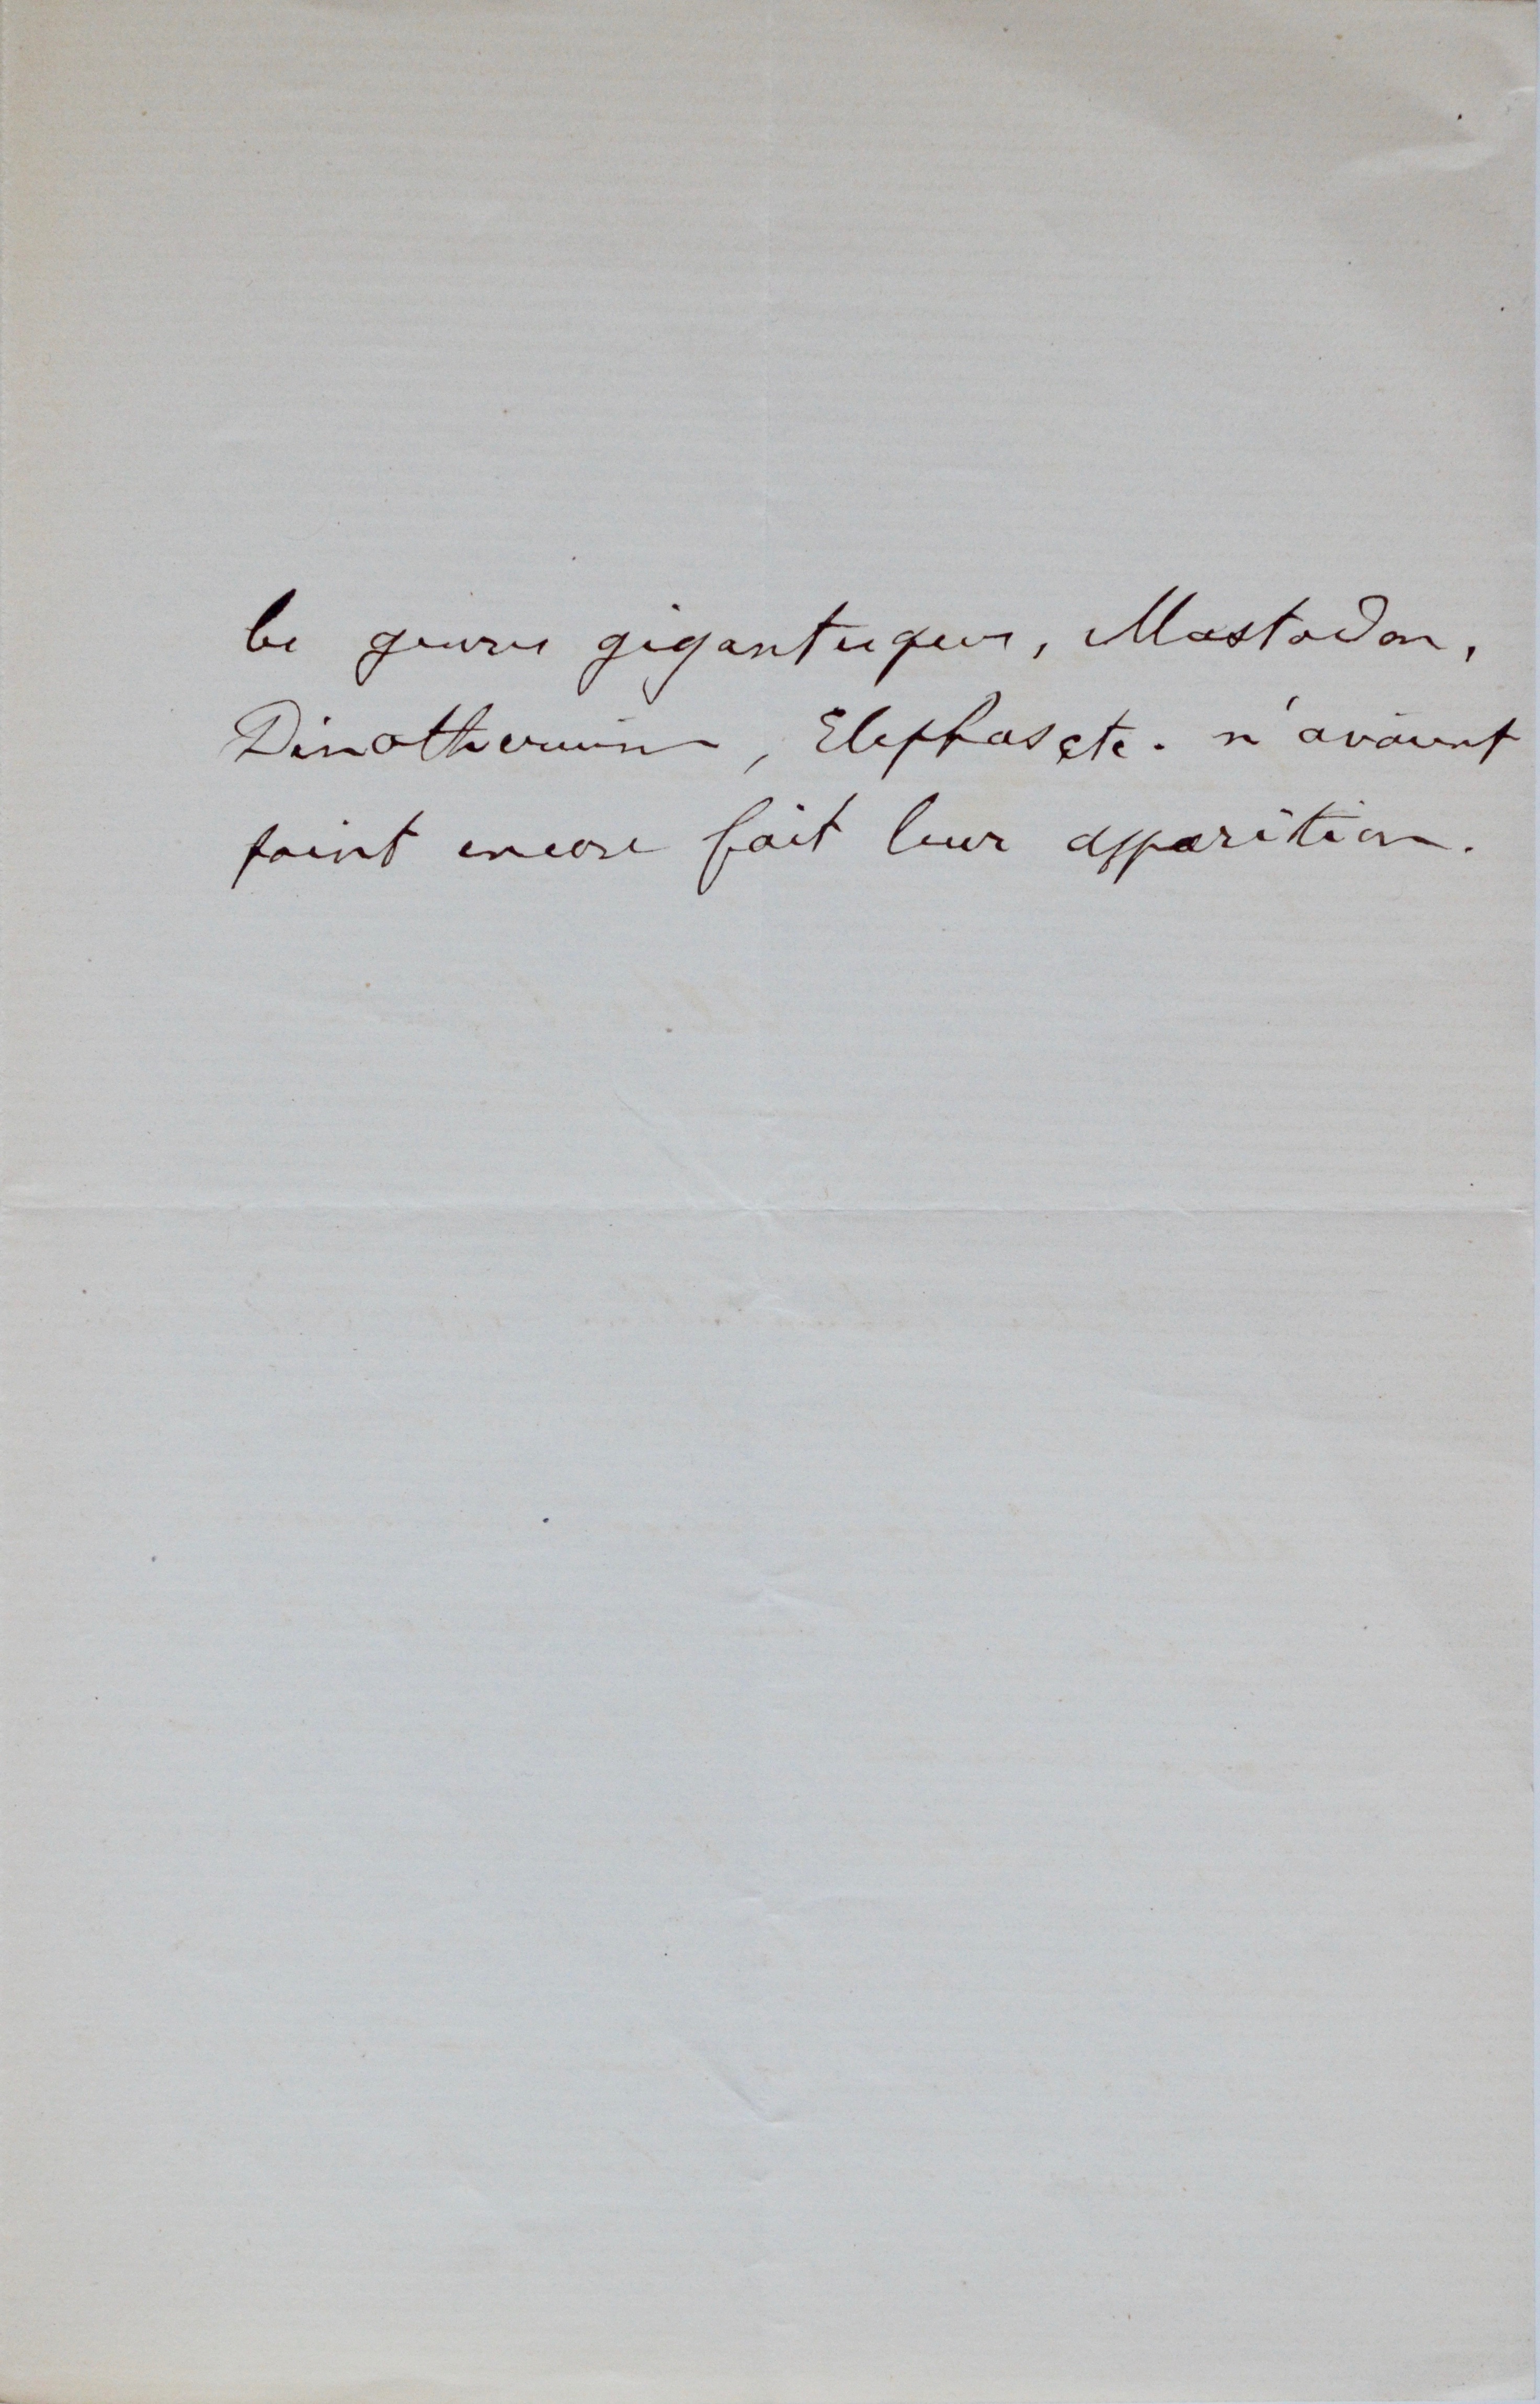 les genres gigantesques, Mastodon,
Dinotherium, Elephas etc. n'avaient
point encore fait leur apparition.